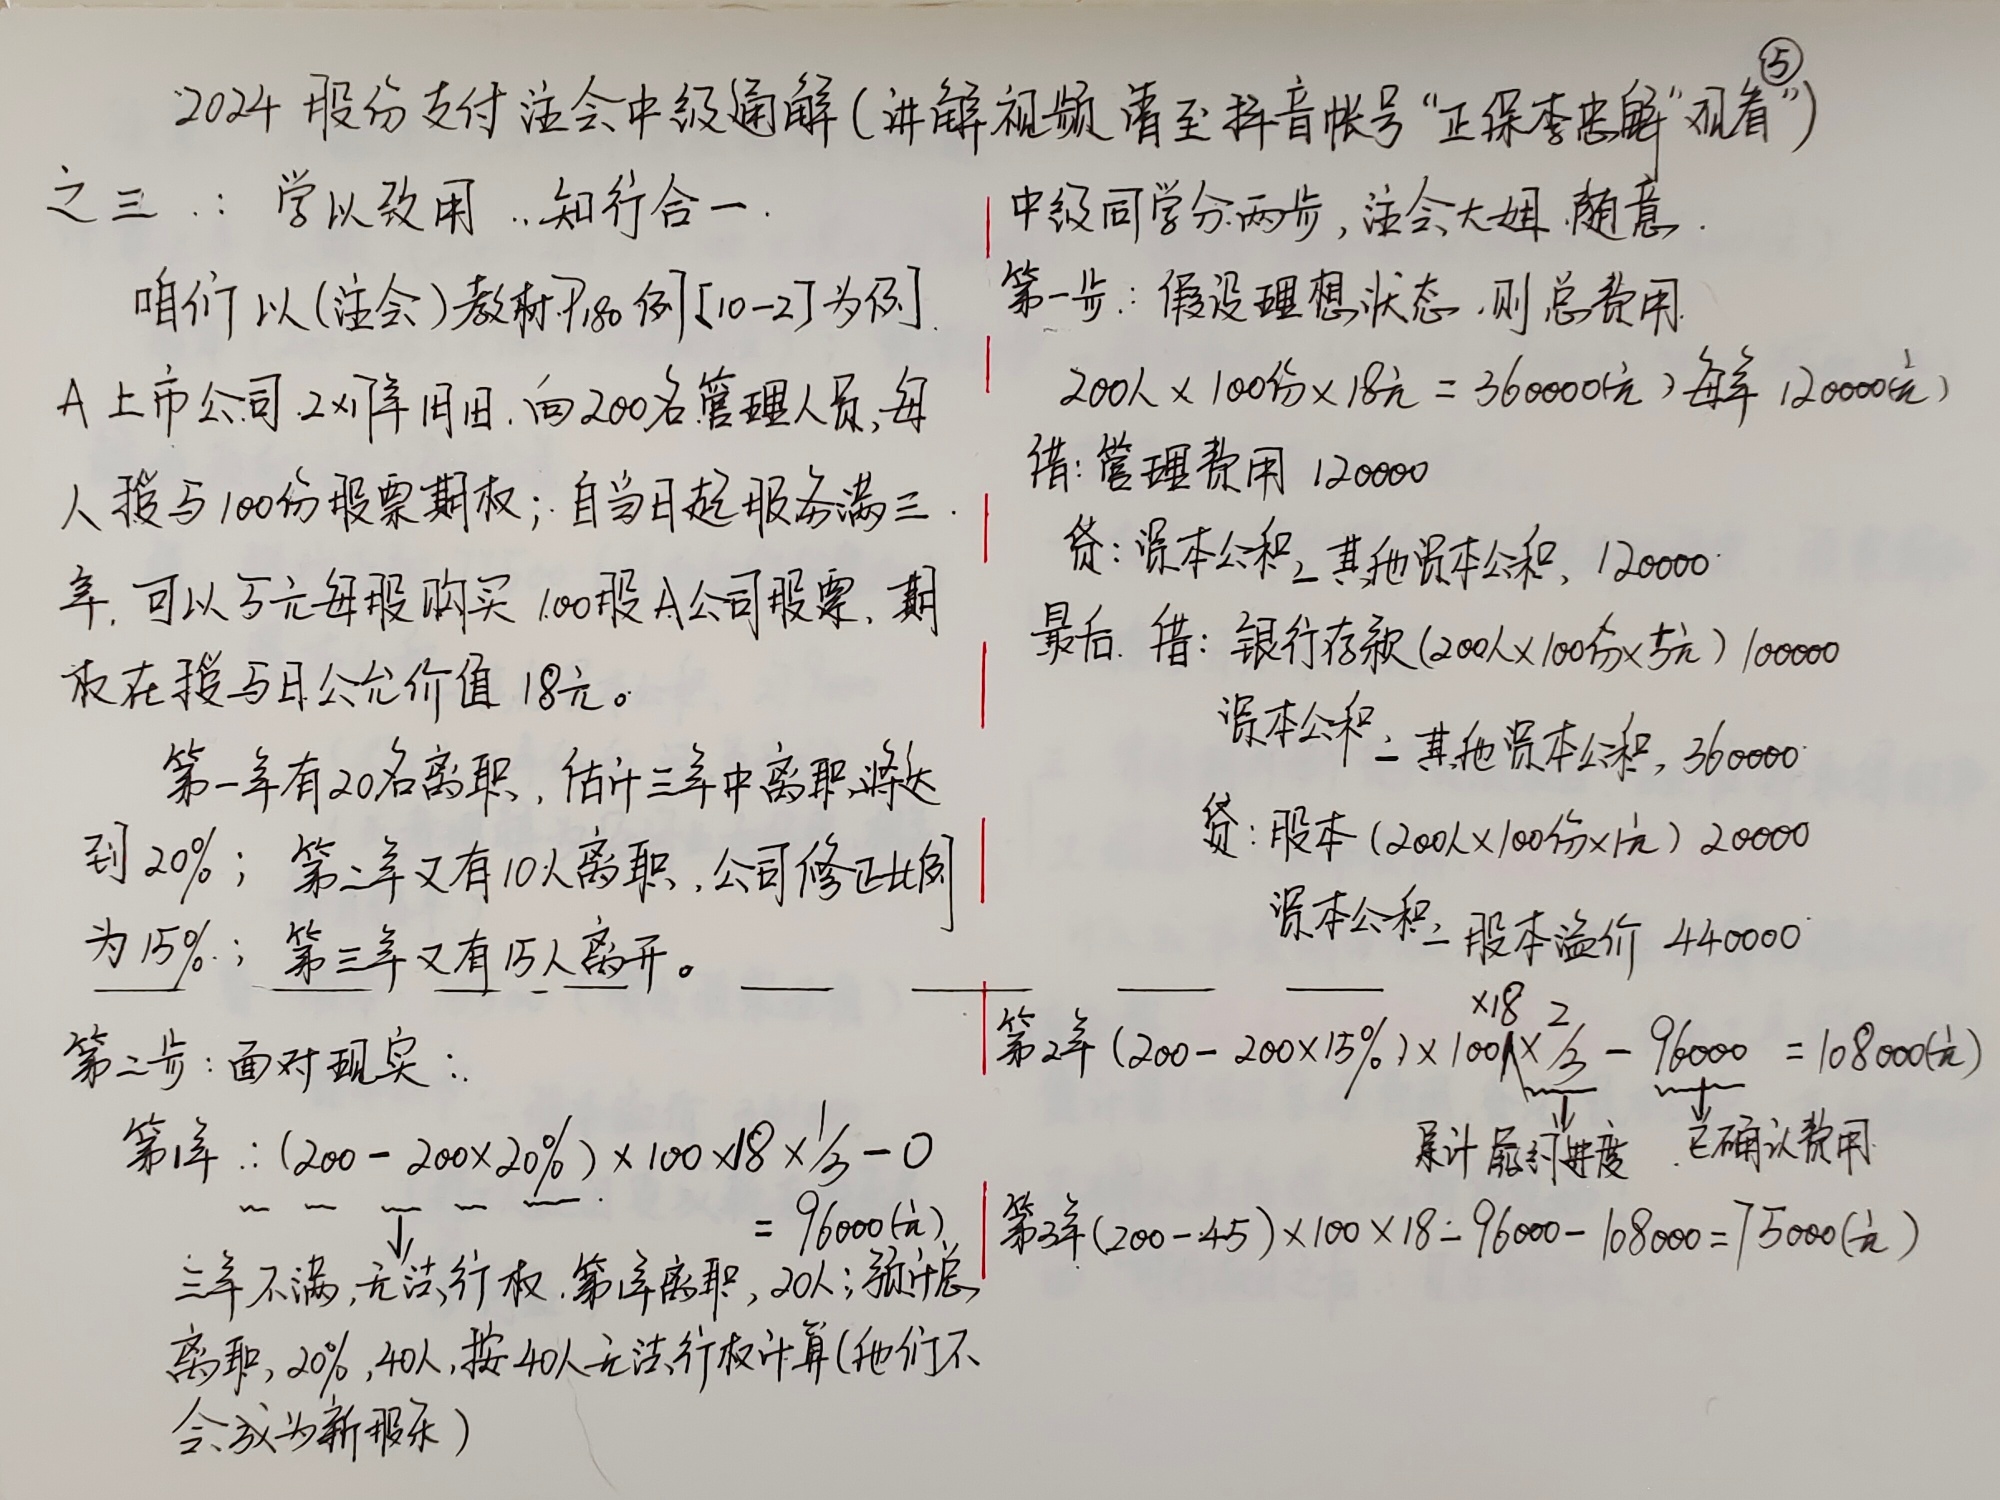 ⑤
2024 股份支付注会中级通解(讲解视频请至抖音帐号“正保李忠魁”观看”)
之三:学以致用..知行合一.
咱们以(注会)教材P180例[10-2]为例.
A上市公司2×1年1月1日.向200名管理人员,每
人授与100份股票期权;自当日起服务满三
年,可以5元每股购买100股A公司股票,期
权在授与日公允价值18元。
第一年有20名离职,估计三年中离职将达
到20%;第二年又有10人离职,公司修正比例
为15%;第三年又有15人离开。
中级同学分两步,注会大姐随意.
第一步:假设理想状态,则总费用
200人×100份×18元=360000(元)每年120000(元)
借:管理费用 120000
贷:资本公积—其他资本公积,120000
最后.借:银行存款(200人×100份×5元)100000
资本公积—其他资本公积,360000
贷:股本(200人×100份×1元)20000
资本公积—股本溢价 440000
第二步:面对现实:
第1年:(200-200×20%)×100×18×1/3-0
=96000(元)
三年不满,无法行权.第1年离职,20人;预计总
离职,20%,40人,按40人无法行权计算(他们不
会成为新股东)
第2年(200-200×15%)×100×18×2/3-96000=108000(元)
累计履约进度 已确认费用
第3年(200-45)×100×18-96000-108000=75000(元)